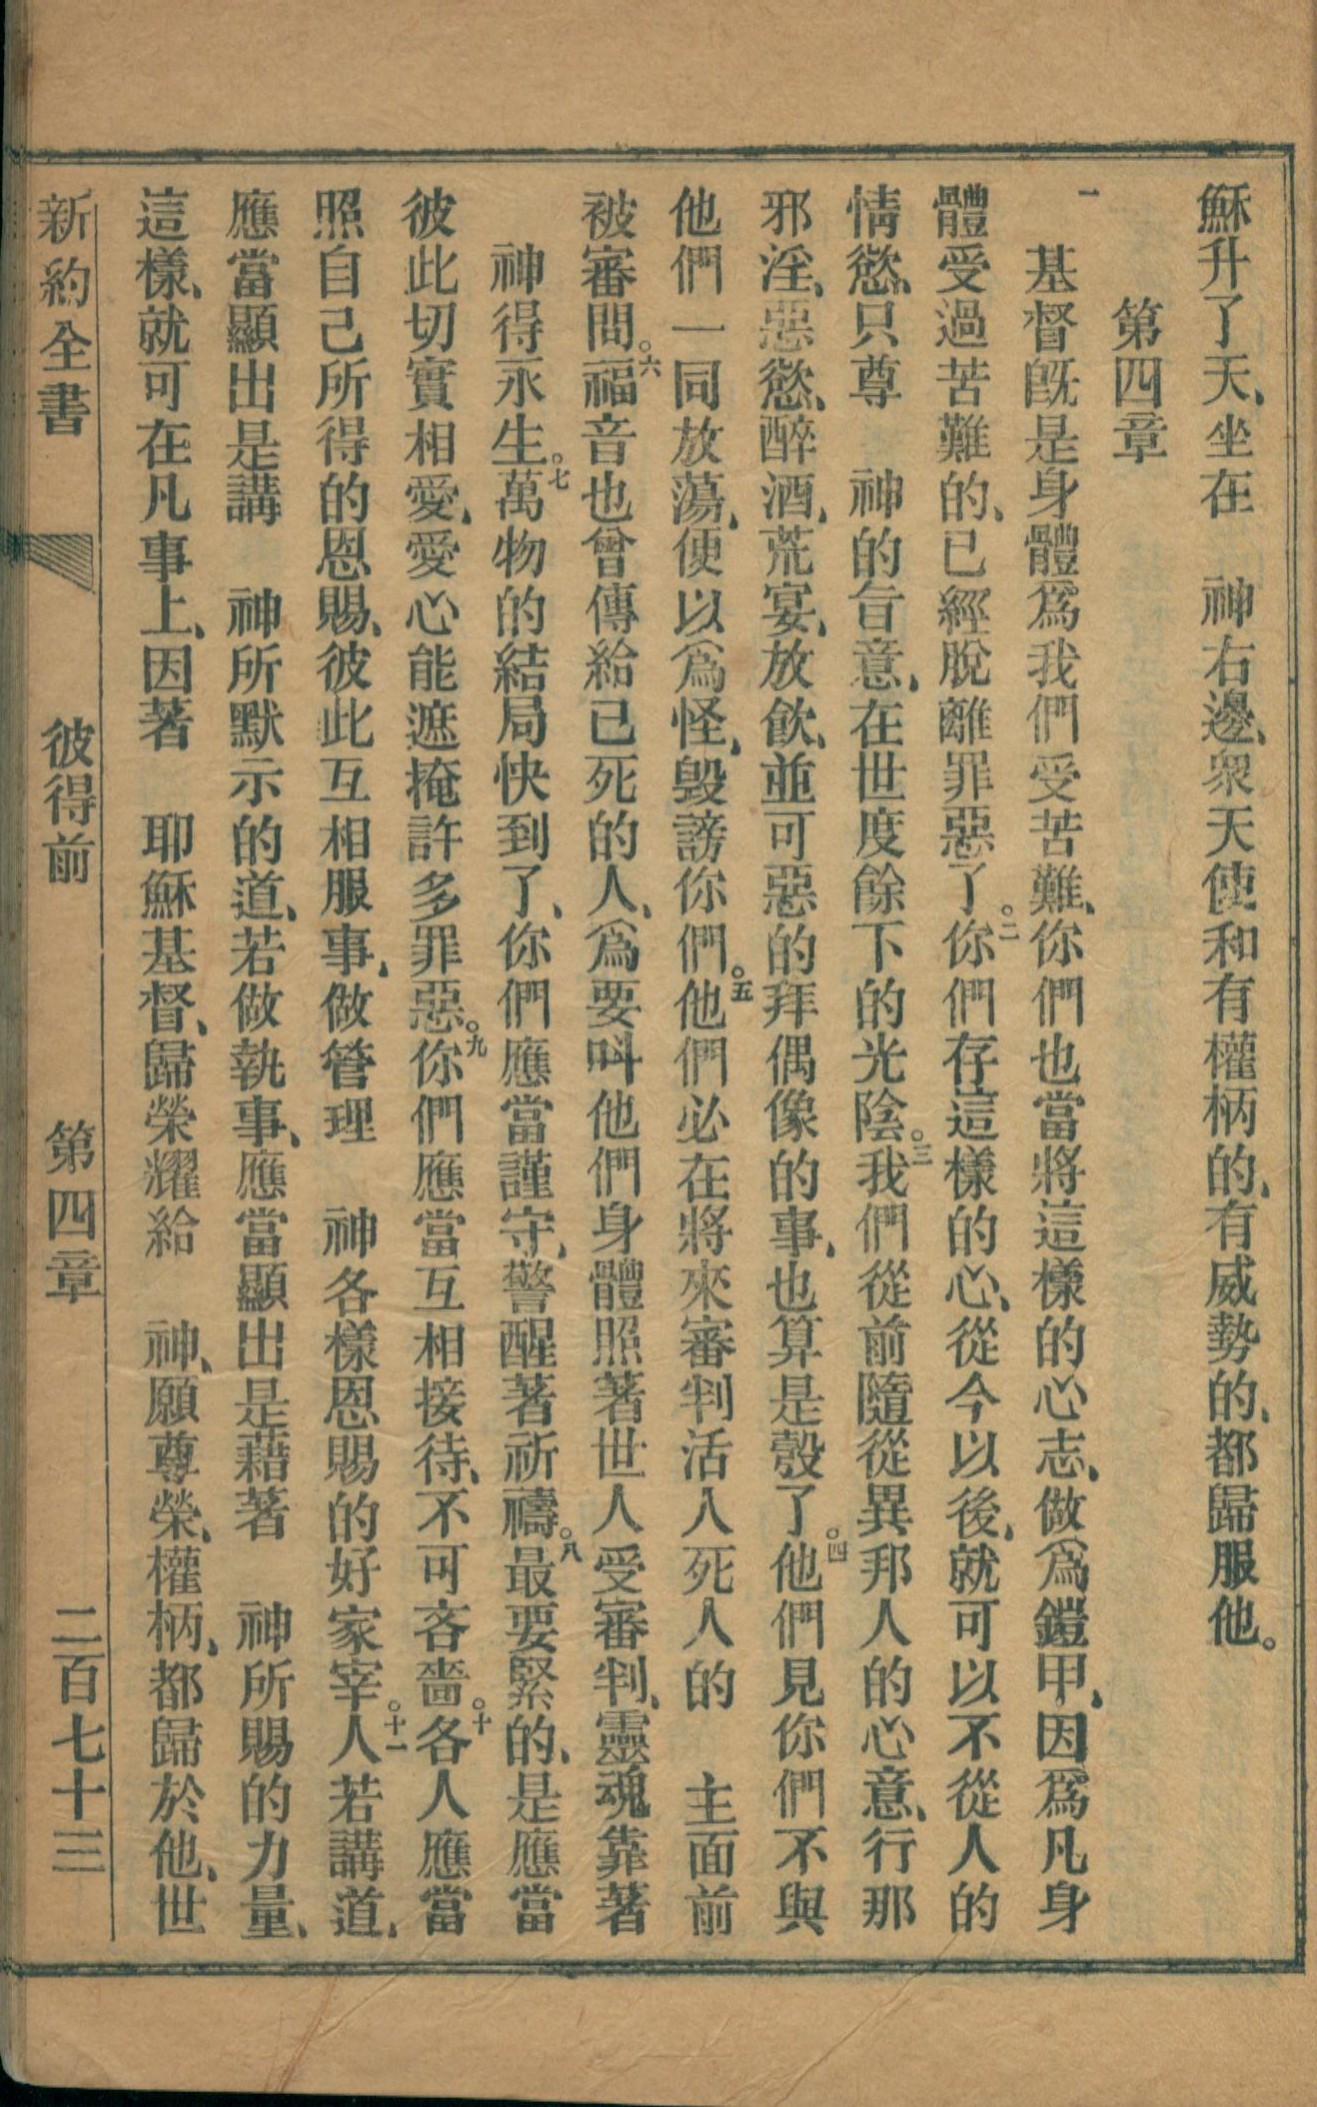 穌升了天、坐在　神右邊、衆天使和有權柄的、有威勢的、都歸服他。
第四章
一　基督旣是身體爲我們受苦難、你們也當將這樣的心志、做爲鎧甲、因爲凡身
體受過苦難的、已經脫離罪惡了。二你們存這樣的心、從今以後、就可以不從人的
情慾、只尊　神的旨意、在世度餘下的光陰。三我們從前隨從異邦人的心意、行那
邪淫、惡慾、醉酒、荒宴、放飮、並可惡的拜偶像的事、也算是彀了。四他們見你們不與
他們一同放蕩、便以爲怪、毀謗你們。五他們必在將來審判活人死人的　主面前
被審問。六福音也曾傳給已死的人、爲要呌他們身體照著世人受審判、靈魂靠著
神得永生。七萬物的結局快到了、你們應當謹守、警醒著祈禱。八最要緊的、是應當
彼此切實相愛、愛心能遮掩許多罪惡。九你們應當互相接待、不可吝嗇。十各人應當
照自己所得的恩賜、彼此互相服事、做管理　神各樣恩賜的好家宰。十一人若講道、
應當顯出是講　神所默示的道、若做執事、應當顯出是藉著　神所賜的力量、
這樣、就可在凡事上、因著　耶穌基督、歸榮耀給　神、願尊榮、權柄、都歸於他、世
新約全書　彼得前　第四章　二百七十三